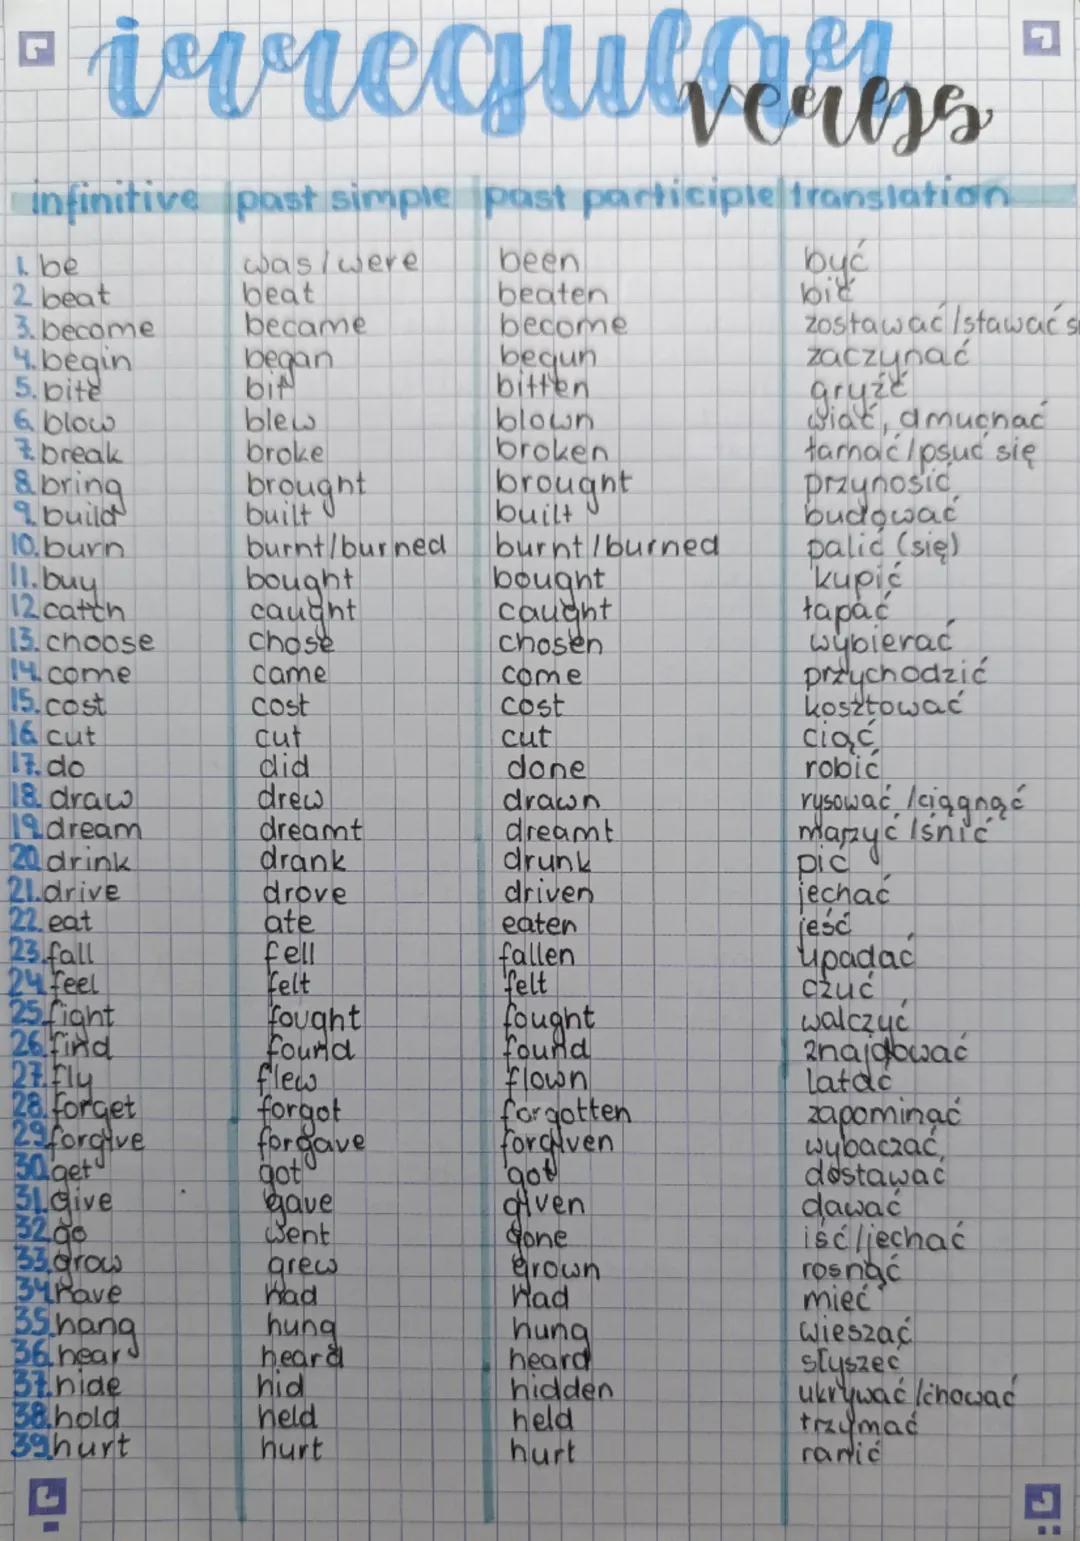 irregular
verbs
infinitive past simple past participle translation
1. be was/were been być
2 beat beat beaten bić
3. become became become zostawać/stawać s
4. begin began begun zaczynać
5. bite bit bitten gryźć
6. blow blew blown wiać, dmuchać
7. break broke broken łamać/psuć się
8. bring brought brought przynosić
9. build built built budować
10. burn burnt/burned burnt/burned palić (się)
11. buy bought bought kupić
12 catch caught caught łapać
13. choose chose chosen wybierać
14. come came come przychodzić
15. cost cost cost kosztować
16. cut cut cut ciąć
17. do did done robić
18. draw drew drawn rysować /ciągnąć
19. dream dreamt dreamt marzyć /śnić
20. drink drank drunk pić
21. drive drove driven jechać
22. eat ate eaten jeść
23. fall fell fallen upadać
24. feel felt felt czuć
25. fight fought fought walczyć
26. find found found znajdować
27. fly flew flown latać
28. forget forgot forgotten zapominać
29 forgive forgave forgiven wybaczać
30. get got got dostawać
31. give gave given dawać
32 go went gone iść/jechać
33. grow grew grown rosnąć
34 have had had mieć
35. hang hung hung wieszać
36. hear heard heard słyszeć
37. hide hid hidden ukrywać /chować
38. hold held held trzymać
39. hurt hurt hurt ranić